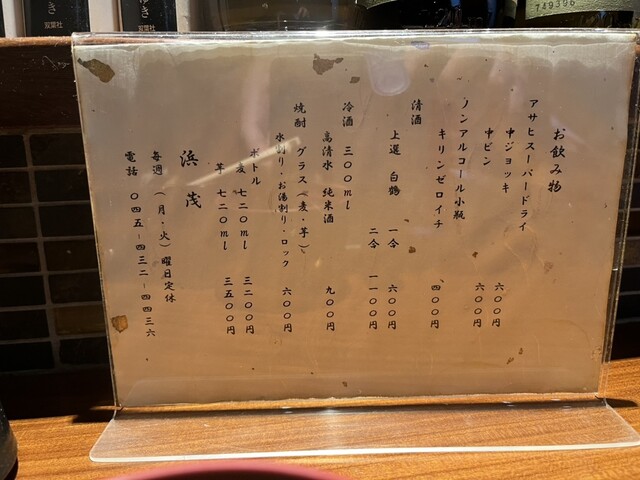 お飲み物
アサヒスーパードライ
中ジョッキ 六〇〇円
中ビン 六〇〇円
ノンアルコール小瓶
キリンゼロイチ 四〇〇円
清酒
上選 白鶴 一合 六〇〇円
二合 一一〇〇円
冷酒 三〇〇ml
高清水 純米酒 九〇〇円
焼酎 グラス(麦・芋)
水割り・お湯割り・ロック 六〇〇円
ボトル
麦 七二〇ml 三二〇〇円
芋 七二〇ml 三五〇〇円
浜茂
毎週(月・火)曜日定休
電話 〇四五-四三二-四四三六
双葉社
双葉社
749396